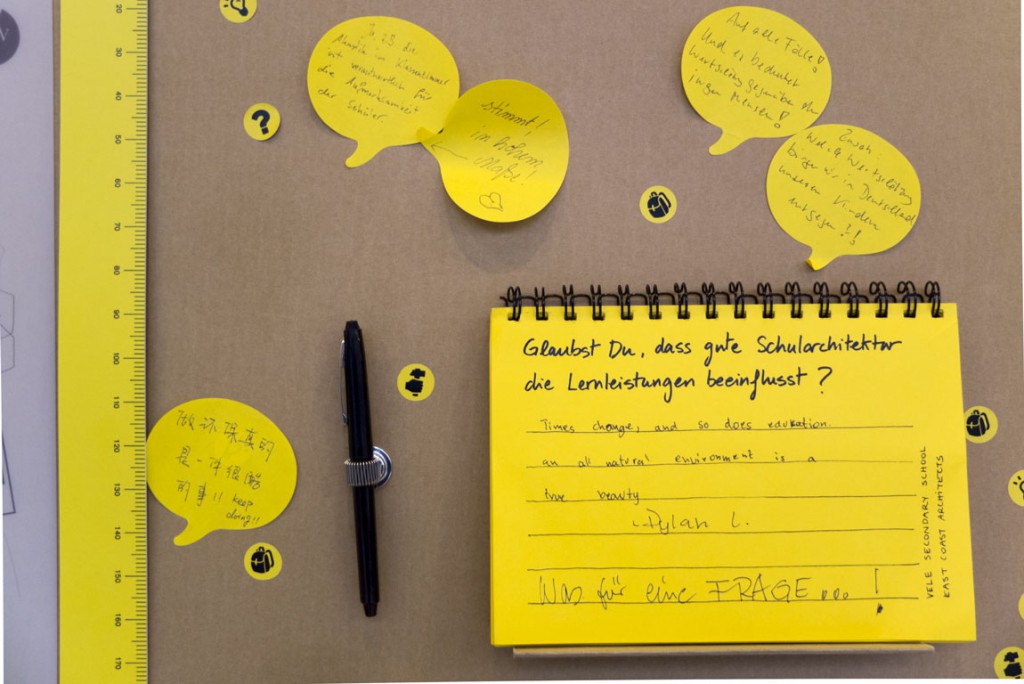 20
30
40
50
60
70
80
90
100
110
120
130
140
150
160
170
?
Ja, z.B. die
Akustik im Klassenzimmer
ist verantwortlich für
die Aufmerksamkeit
der Schüler
stimmt!
im hohem
Maße!
Auf alle Fälle!
Und es bedeutet
Wertschätzung gegenüber den
jungen Menschen!
Welche Wertschätzung
bringen wir in Deutschland
unseren Kindern
entgegen!!
Glaubst Du, dass gute Schularchitektur
die Lernleistungen beeinflusst?
Times change, and so does edukation.
an all natural environment is a
true beauty
-Dylan L.
Was für eine FRAGE...!
VELE SECONDARY SCHOOL
EAST COAST ARCHITECTS
做你
是一件很酷
的事!! keep
doing!!